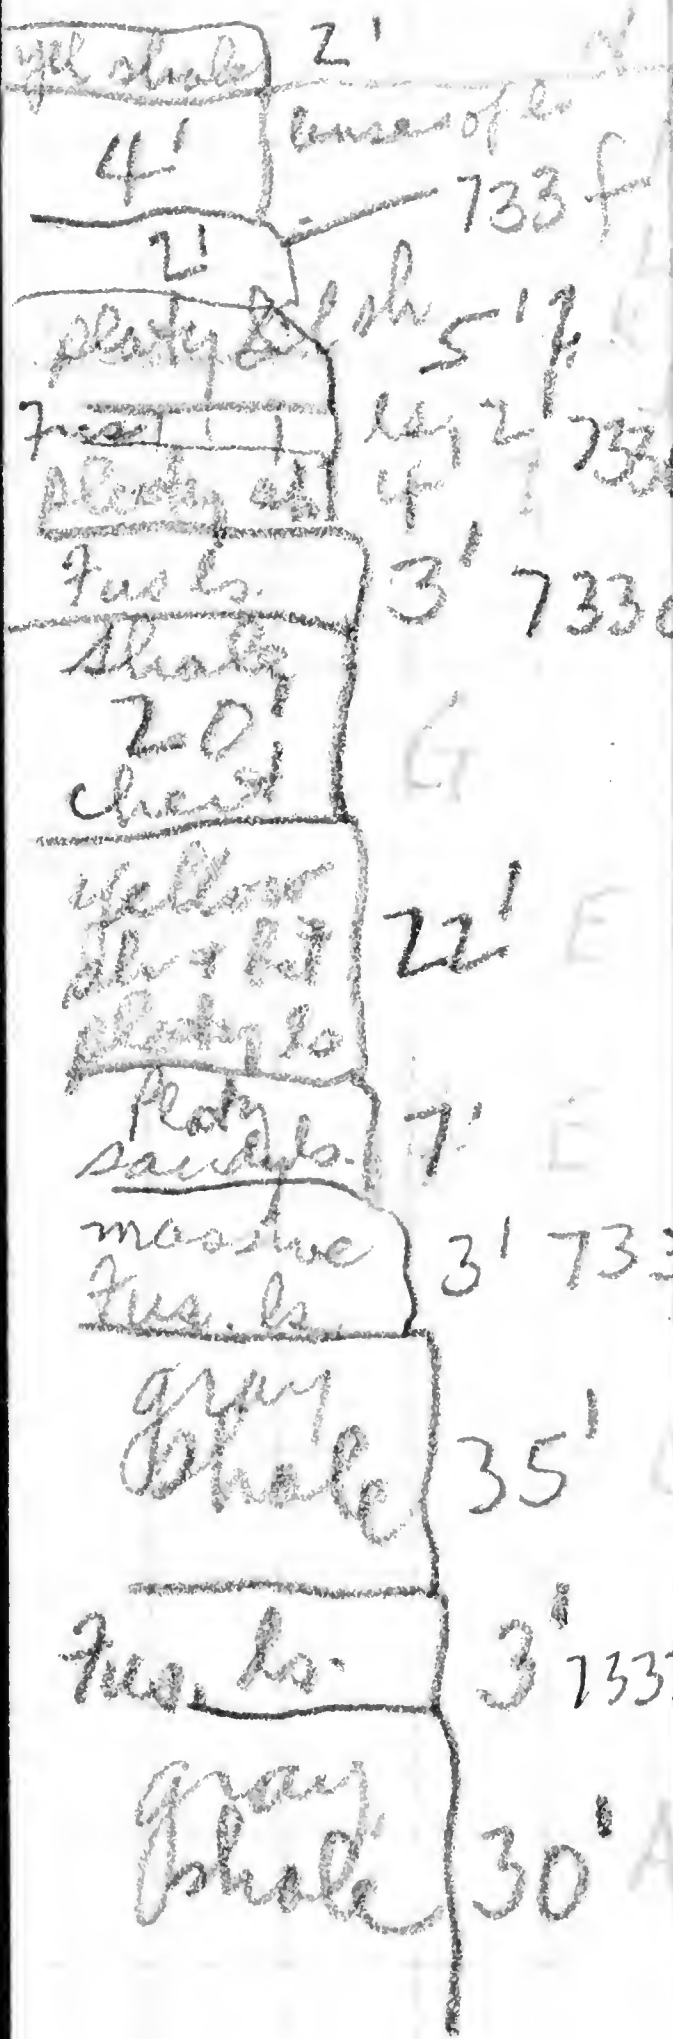 yel shale 2'
4' lenses of ls
733 f
2'
platy & sh 5'
Fus ls, 2' 733
platy 4'
Fus ls. 3' 733
Shale
20'
chert
yellow
sh +
platy ls
22' E
Platy
sandy ls. 7' E
massive
Fus. ls. 3' 733
gray
shale 35'
Fus. ls. 3' 733
gray
shale 30' A
G